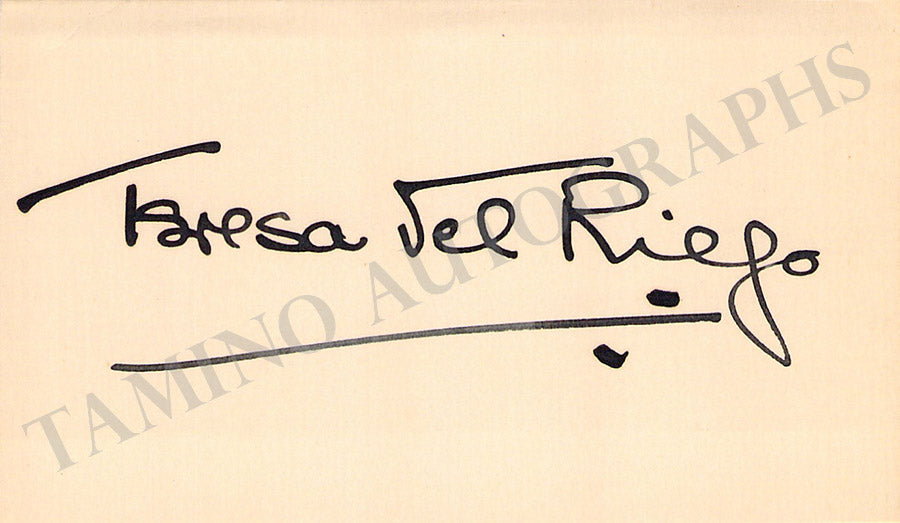 Teresa del Riego
TAMINO AUTOGRAPHS